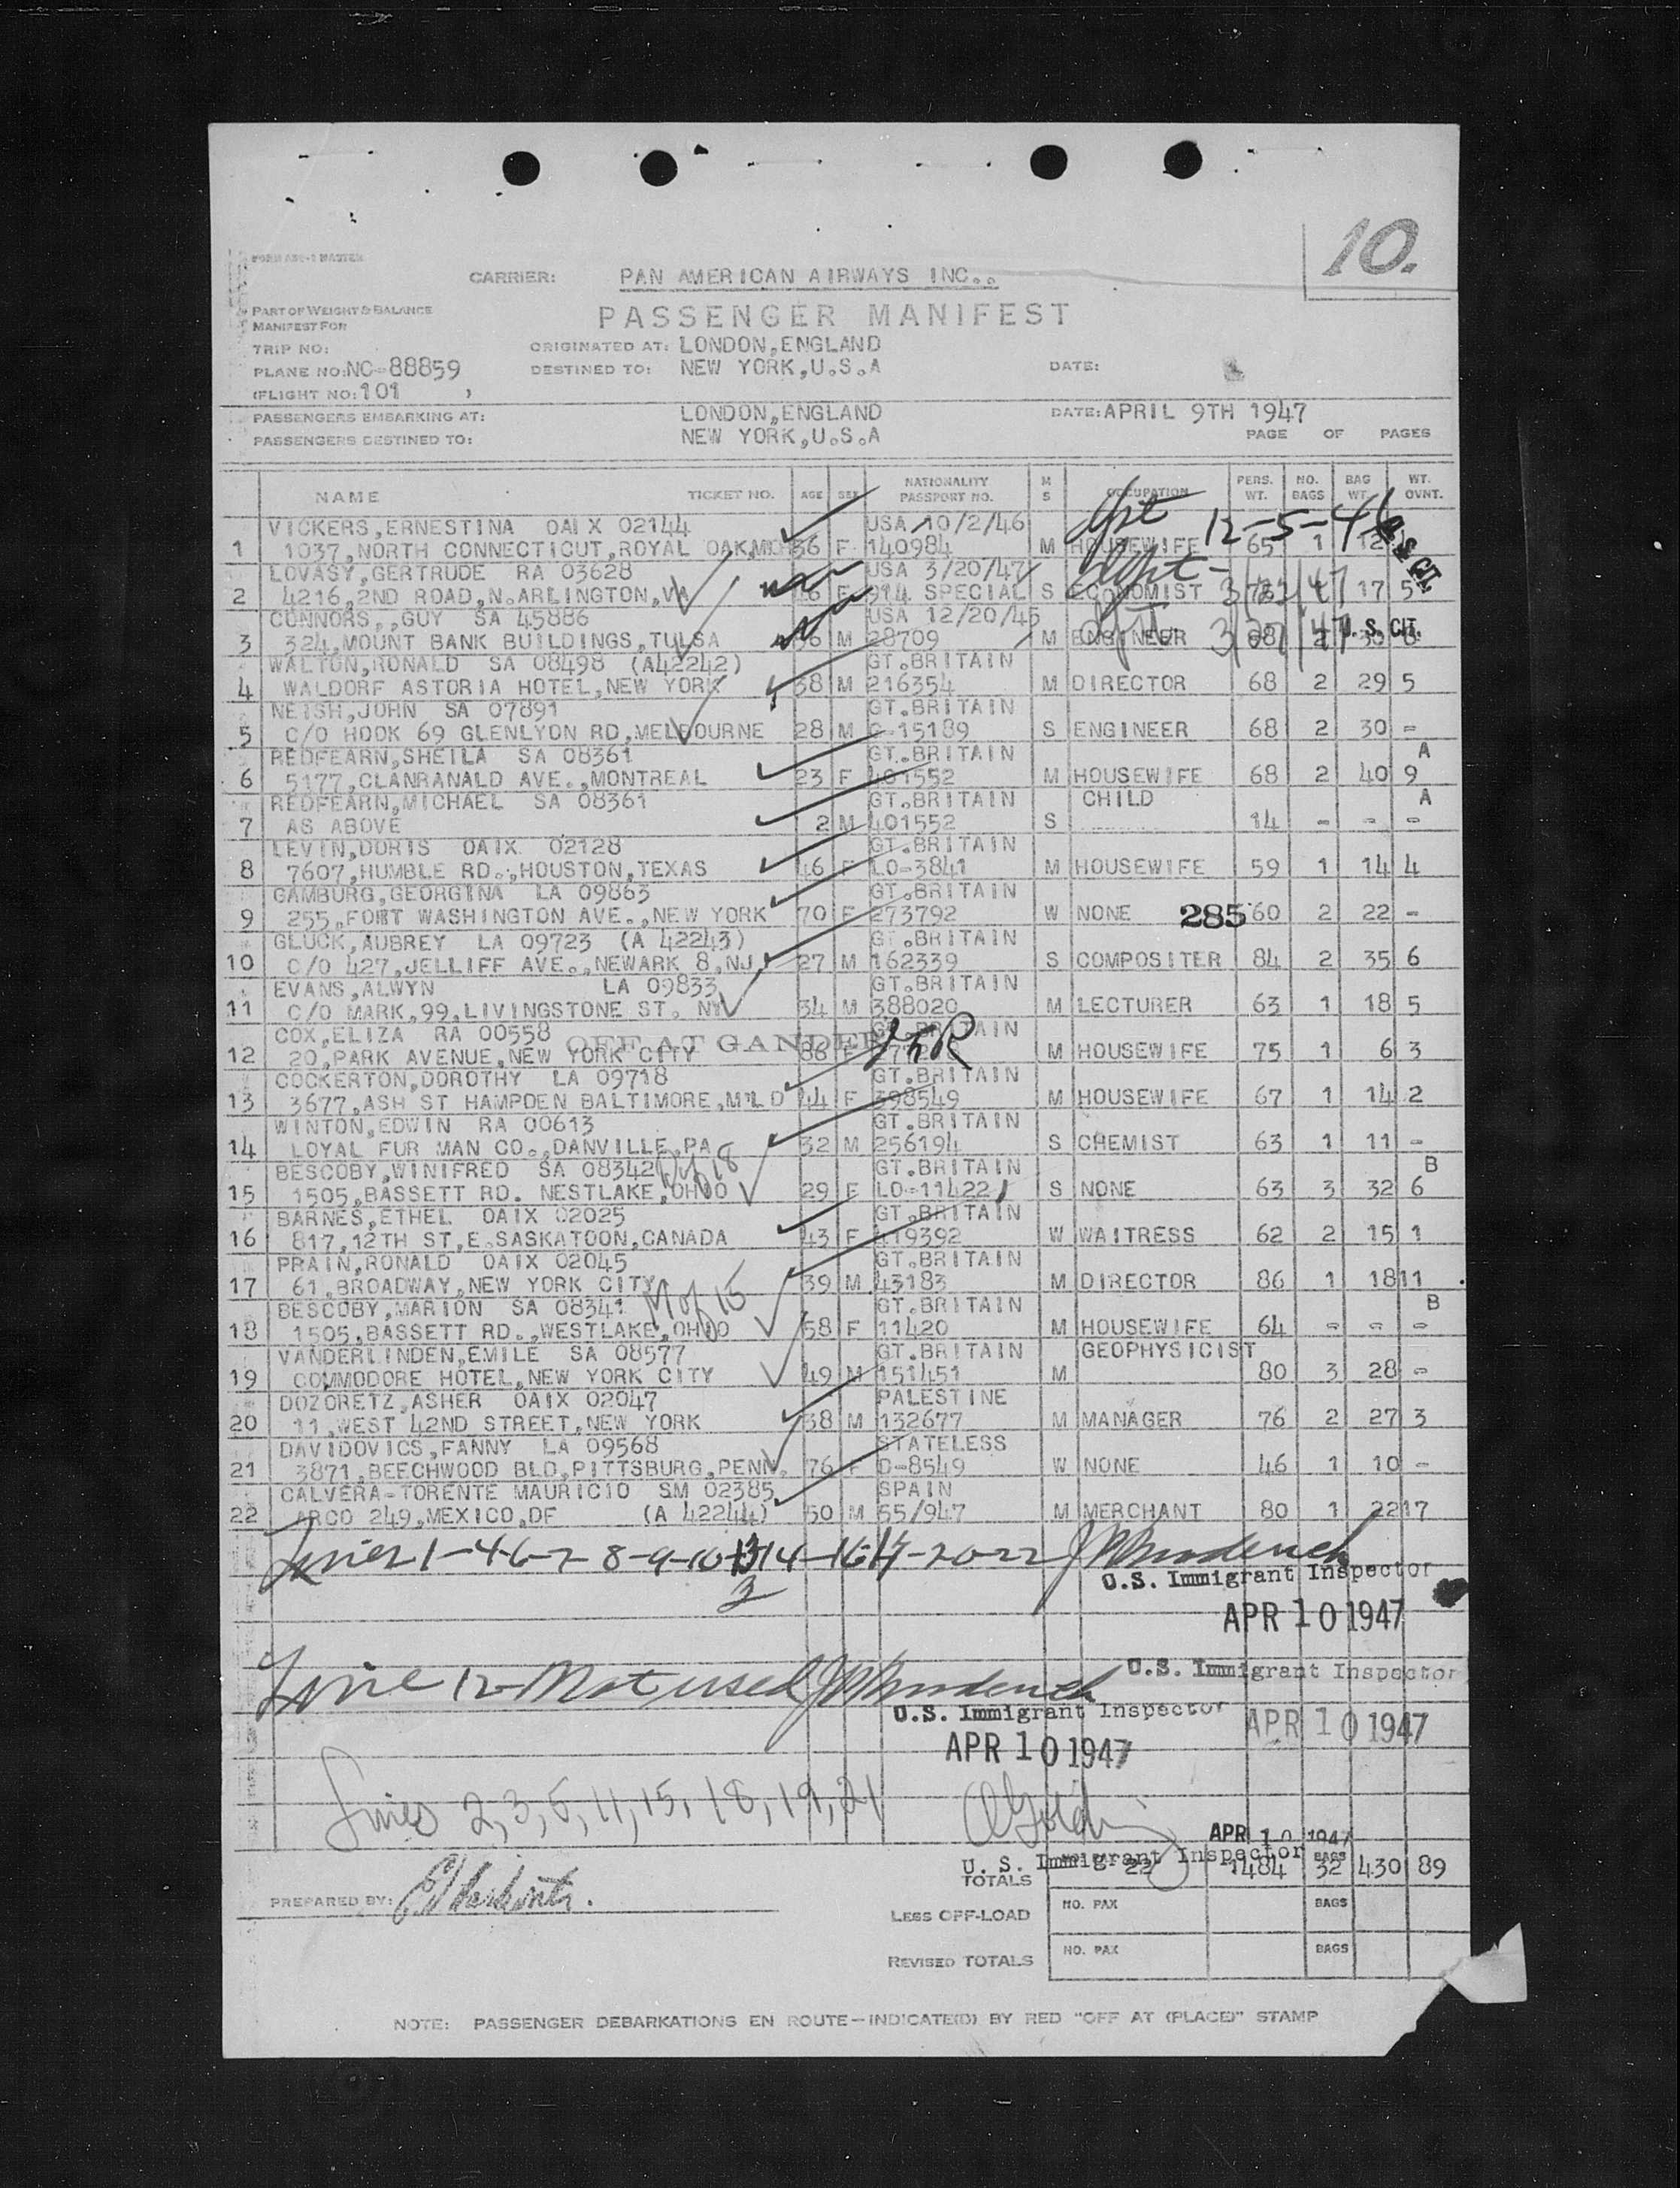 10.
FORM ASE-1 MASTER
CARRIER: PAN AMERICAN AIRWAYS INC..
PART OF WEIGHT & BALANCE
MANIFEST FOR
PASSENGER MANIFEST
TRIP NO: ORIGINATED AT: LONDON,ENGLAND
PLANE NO:NC-88859 DESTINED TO: NEW YORK,U.S.A DATE:
(FLIGHT NO:101 )
PASSENGERS EMBARKING AT: LONDON,ENGLAND DATE:APRIL 9TH 1947
PASSENGERS DESTINED TO: NEW YORK,U.S.A PAGE OF PAGES
NAME TICKET NO. AGE SEX NATIONALITY PASSPORT NO. M S OCCUPATION PERS. WT. NO. BAGS BAG WT. WT. OVNT.
VICKERS,ERNESTINA OAIX 02144 USA 10/2/46 12-5-46
1 1037,NORTH CONNECTICUT,ROYAL OAK, 36 F 140984 M HOUSEWIFE 65 1 12 U.S.CIT.
LOVASY,GERTRUDE RA 03628 USA 3/20/47
2 4216,2ND ROAD,N.ARLINGTON,VA 46 F 914 SPECIAL S ECONOMIST 17 5
CONNORS,,GUY SA 45886 USA 12/20/45
3 324,MOUNT BANK BUILDINGS,TULSA 36 M 28709 M ENGINEER 88 2 30 U. S. CIT.
WALTON,RONALD SA 08498 (A42242) GT.BRITAIN
4 WALDORF ASTORIA HOTEL,NEW YORK 38 M 216354 M DIRECTOR 68 2 29 5
NEISH,JOHN SA 07891 GT.BRITAIN
5 C/O HOOK 69 GLENLYON RD,MELBOURNE 28 M C-15189 S ENGINEER 68 2 30 -
REDFEARN,SHEILA SA 08361 GT.BRITAIN A
6 5177,CLANRANALD AVE.,MONTREAL 23 F 401552 M HOUSEWIFE 68 2 40 9
REDFEARN,MICHAEL SA 08361 GT.BRITAIN CHILD A
7 AS ABOVE 2 M 401552 S 14 - - -
LEVIN,DORIS OAIX 02128 GT.BRITAIN
8 7607,HUMBLE RD.,HOUSTON,TEXAS 46 F LO-3841 M HOUSEWIFE 59 1 14 4
GAMBURG,GEORGINA LA 09863 GT.BRITAIN
9 255,FORT WASHINGTON AVE.,NEW YORK 70 F 273792 W NONE 285 60 2 22 -
GLUCK,AUBREY LA 09723 (A 42243) GT.BRITAIN
10 C/O 427,JELLIFF AVE.,NEWARK 8,NJ 27 M 162339 S COMPOSITER 84 2 35 6
EVANS,ALWYN LA 09833 GT.BRITAIN
11 C/O MARK,99,LIVINGSTONE ST. NY 34 M 388020 M LECTURER 63 1 18 5
COX,ELIZA RA 00558 GT.BRITAIN
OFF AT GANDER
12 20,PARK AVENUE,NEW YORK CITY 86 F M HOUSEWIFE 75 1 6 3
COCKERTON,DOROTHY LA 09718 GT.BRITAIN
13 3677,ASH ST HAMPDEN BALTIMORE, 44 F 398549 M HOUSEWIFE 67 1 14 2
WINTON,EDWIN RA 00613 GT.BRITAIN
14 LOYAL FUR MAN CO.,DANVILLE,PA 32 M 256194 S CHEMIST 63 1 11 -
BESCOBY,WINIFRED SA 08342 D of 18 GT.BRITAIN B
15 1505,BASSETT RD. NESTLAKE,OHIO 29 F LO-11422 S NONE 63 3 32 6
BARNES,ETHEL OAIX 02025 GT.BRITAIN
16 817,12TH ST,E.SASKATOON,CANADA 43 F 419392 W WAITRESS 62 2 15 1
PRAIN,RONALD OAIX 02045 GT.BRITAIN
17 61,BROADWAY,NEW YORK CITY 39 M 43183 M DIRECTOR 86 1 18 11
BESCOBY,MARION SA 08341 M of 15 GT.BRITAIN B
18 1505,BASSETT RD.,WESTLAKE,OHIO 58 F 11420 M HOUSEWIFE 64 - - -
VANDERLINDEN,EMILE SA 08577 GT.BRITAIN GEOPHYSICIST
19 COMMODORE HOTEL,NEW YORK CITY 49 M 151451 M 80 3 28 -
DOZORETZ,ASHER OAIX 02047 PALESTINE
20 11,WEST 42ND STREET,NEW YORK 38 M 132677 M MANAGER 76 2 27 3
DAVIDOVICS,FANNY LA 09568 STATELESS
21 3871,BEECHWOOD BLD,PITTSBURG,PENN. 76 F D-8549 W NONE 46 1 10 -
CALVERA-TORENTE MAURICIO SM 02385 SPAIN
22 ARCO 249,MEXICO,DF (A 42244) 50 M 55/947 M MERCHANT 80 1 22 17
Lines 1-4-6-7-8-9-10-13-14-16-17-20-22
U.S. Immigrant Inspector
APR 10 1947
Line 12 Not used
U.S. Immigrant Inspector
U.S. Immigrant Inspector
APR 10 1947
APR 10 1947
Lines 2,3,5,11,15,18,19,21
APR 10 1947
U. S. Immigrant Inspector
TOTALS 22 1484 BAGS 32 430 89
PREPARED BY:
LESS OFF-LOAD NO. PAX BAGS
REVISED TOTALS NO. PAX BAGS
NOTE: PASSENGER DEBARKATIONS EN ROUTE—INDICATE(D) BY RED "OFF AT (PLACE)" STAMP